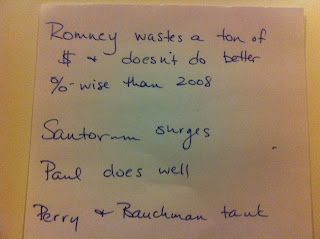 Romney wastes a ton of
$ & doesn't do better
%-wise than 2008
Santorum surges
Paul does well
Perry & Bauchman tank